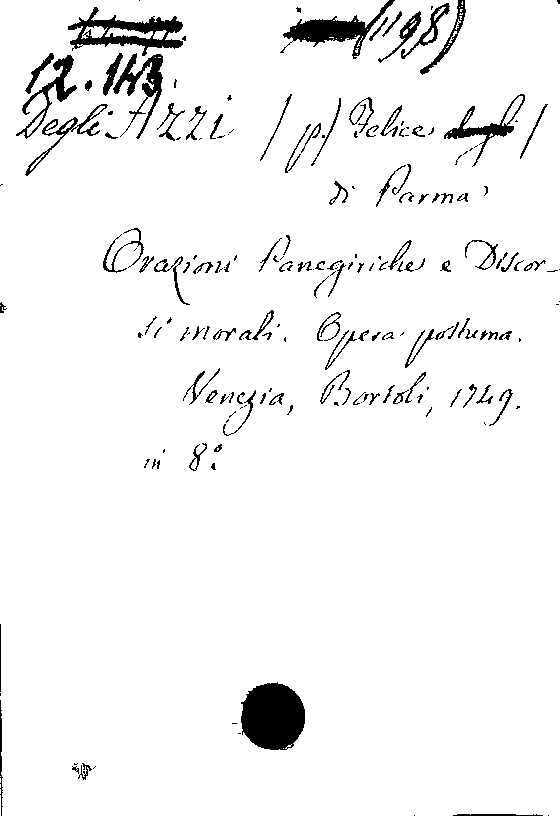 (1198)
12.143.
Degli Azzi (p.) Felice degli)
di Parma
Orazioni Panegiriche e Discor-
si morali. Opera postuma.
Venezia, Bortoli, 1749.
in 8º.